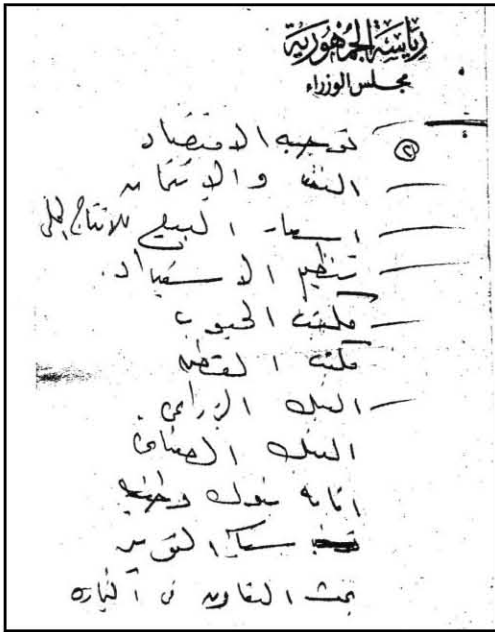 رياسة الجمهورية
مجلس الوزراء
(٢) توجيه الاقتصاد
النقد والائتمان
اسعار البيع للانتاج المحلى
تنظيم الاستيراد
مكتب الحبوب
مكتب القطن
البنك الزراعى
البنك الصناعى
بنوك وطنيه
بحث التعاون فى التجاره